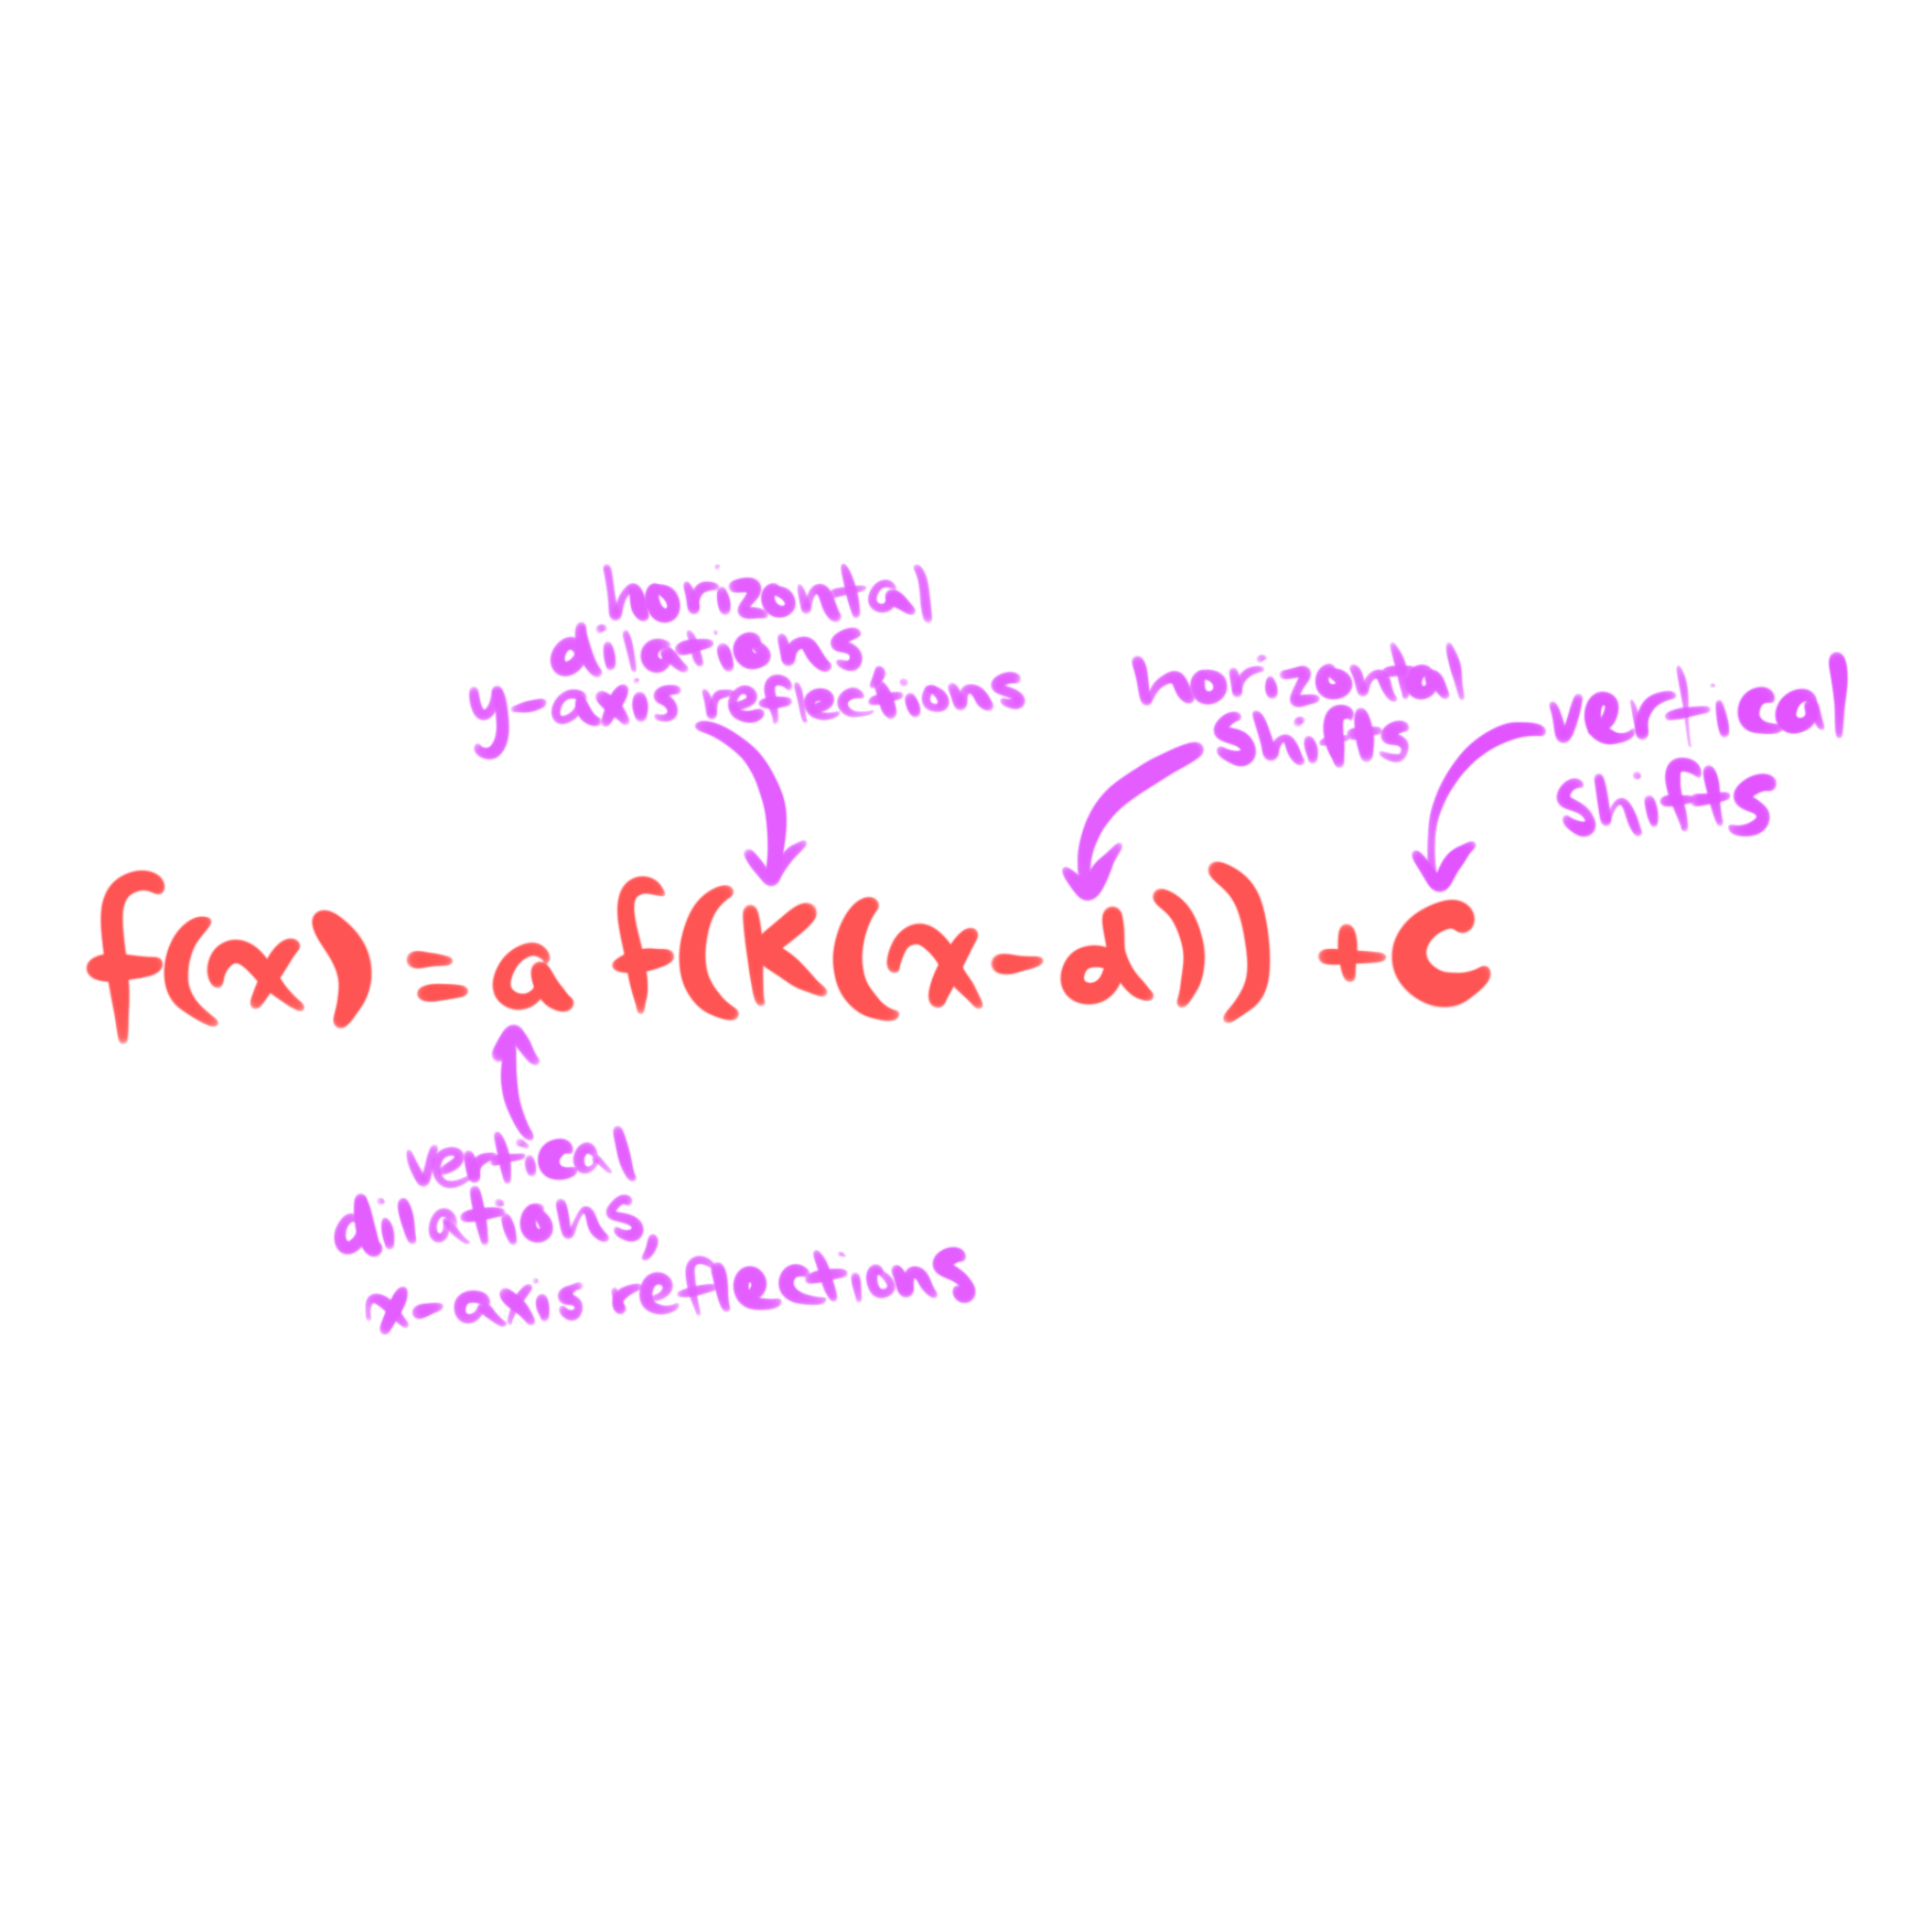 horizontal
dilations
y-axis reflections
horizontal
shifts
vertical
shifts
f(x) = a f(K(x-d)) + C
vertical
dilations,
x-axis reflections